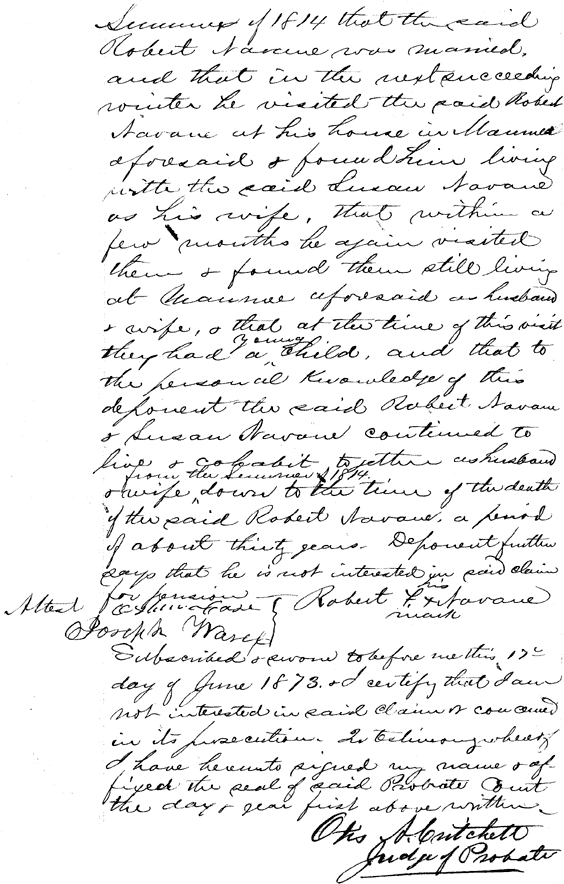 Summer of 1814 that the said
Robert Navane was married,
and that in the next succeeding
winter he visited the said Robert
Navane at his house in Maumee
aforesaid & found him living
with the said Susan Navane
as his wife, that within a
few months he again visited
them & found them still living
at Maumee aforesaid as husband
& wife, & that at the time of this visit
they had a young child, and that to
the personal knowledge of this
deponent the said Robert Navane
& Susan Navane continued to
live & cohabit together as husband
& wife from the summer of 1814 down to the time of the death
of the said Robert Navane, a period
of about thirty years. Deponent further
says that he is not interested in said claim
for pension
Attest
Case
Joseph
Robert F. his x mark Navane
Subscribed & sworn to before me this 17th
day of June 1873. & I certify that I am
not interested in said claim or concerned
in its prosecution. In testimony whereof
I have hereunto signed my name & af
fixed the seal of said Probate Court
the day & year first above written.
Otis A. Critchett
Judge of Probate